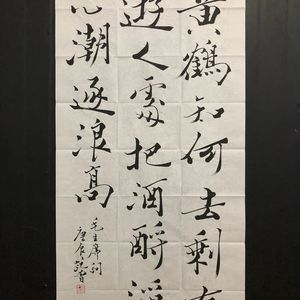 黄鶴知何去剩有
遊人處把酒酹滔
心潮逐浪高
毛主席词
庚辰